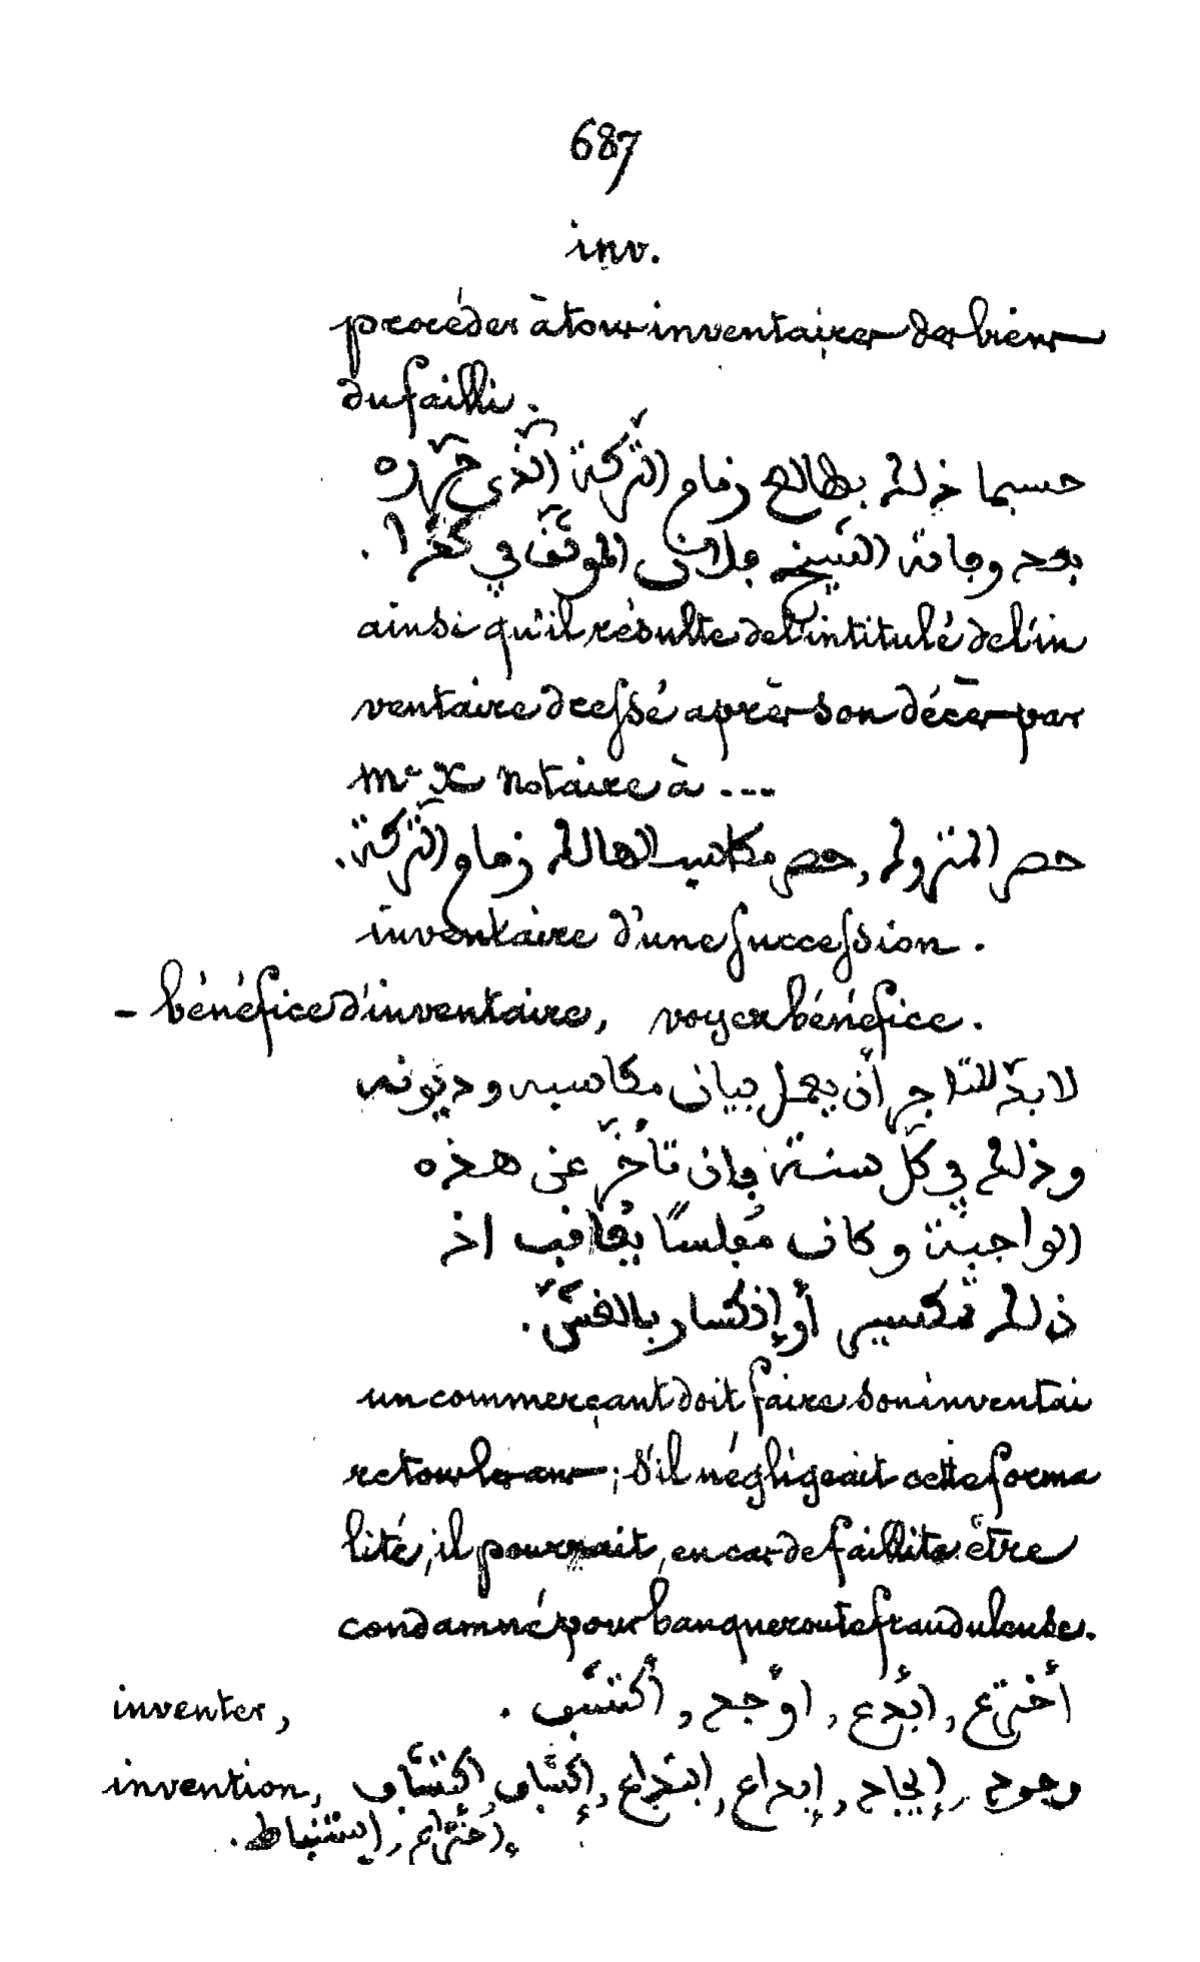 687
inv.
procéder à tous inventaires des biens
du failli.
حسبما ذلك بطالع زمام التركة الذي حرّره
بعد وفاة الشيخ فلان الموثق في كذا.
ainsi qu'il résulte de l'intitulé de l'in
ventaire dressé après son décès par
Me X notaire à ...
حصر المتروك, حصر مكاسب الهالك زمام التركة.
inventaire d'une succession.
- bénéfice d'inventaire, voyez bénéfice.
لا بدّ للتاجر أن يعمل بيان مكاسبه وديونه
وذلك في كلّ سنة فإن تأخّر عن هذه
الواجبة وكان مُفلسًا يُعاقب اذ
ذلك تكسير أو إنكسار بالغشّ.
un commerçant doit faire son inventai
re tous les ans; s'il négligeait cette forma
lité, il pourrait, en cas de faillite être
condamné pour banqueroute frauduleuse.
inventer, أخترع, ابدع, اوجد, أكتشف.
invention, وجود, إيجاد, إبداع, ابتداع, إكتشاف, اكتشاف
إختراع, إستنباط.